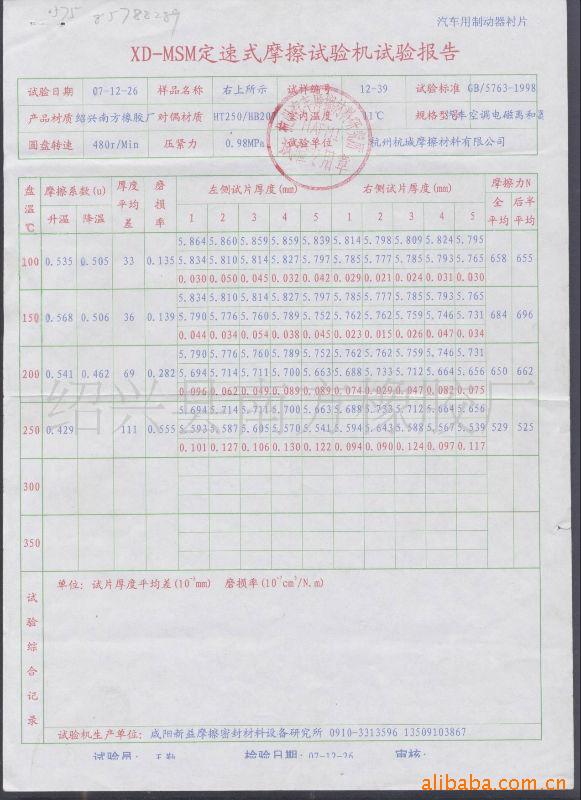 0575 85788289
汽车用制动器衬片
XD-MSM定速式摩擦试验机试验报告
试验日期 07-12-26 样品名称 右上所示 试样编号 12-39 试验标准 GB/5763-1998
产品材质 绍兴南方橡胶厂 对偶材质 HT250/HB207 室内温度 11℃ 规格型号 车空调电磁离和器
圆盘转速 480r/Min 压紧力 0.98MPa 试验单位 杭州杭城摩擦材料有限公司
盘温℃ 摩擦系数(u) 厚度平均差 磨损率 左侧试片厚度(mm) 右侧试片厚度(mm) 摩擦力N
升温 降温 1 2 3 4 5 1 2 3 4 5 全平均 后半平均
5.864 5.860 5.859 5.859 5.839 5.814 5.798 5.809 5.824 5.795
100 0.535 0.505 33 0.135 5.834 5.810 5.814 5.827 5.797 5.785 5.777 5.785 5.793 5.765 658 655
0.030 0.050 0.045 0.032 0.042 0.029 0.021 0.024 0.031 0.030
5.834 5.810 5.814 5.827 5.797 5.785 5.777 5.785 5.793 5.765
150 0.568 0.506 36 0.139 5.790 5.776 5.760 5.789 5.752 5.762 5.762 5.759 5.746 5.731 684 696
0.044 0.034 0.054 0.038 0.045 0.023 0.015 0.026 0.047 0.034
5.790 5.776 5.760 5.789 5.752 5.762 5.762 5.759 5.746 5.731
200 0.541 0.462 69 0.282 5.694 5.714 5.711 5.700 5.663 5.688 5.733 5.712 5.664 5.656 650 662
0.096 0.062 0.049 0.089 0.089 0.074 0.029 0.047 0.082 0.075
5.694 5.714 5.711 5.700 5.663 5.688 5.733 5.712 5.664 5.656
250 0.429 111 0.555 5.593 5.587 5.605 5.570 5.541 5.594 5.643 5.588 5.567 5.539 529 525
0.101 0.127 0.106 0.130 0.122 0.094 0.090 0.124 0.097 0.117
300
350
绍兴县南方橡胶厂
试验综合记录
单位: 试片厚度平均差(10⁻³mm) 磨损率(10⁻⁷cm³/N.m)
试验机生产单位: 咸阳新益摩擦密封材料设备研究所 0910-3313596 13509103867
试验员: 王勤 检验日期: 07-12-26 审核:
alibaba.com.cn